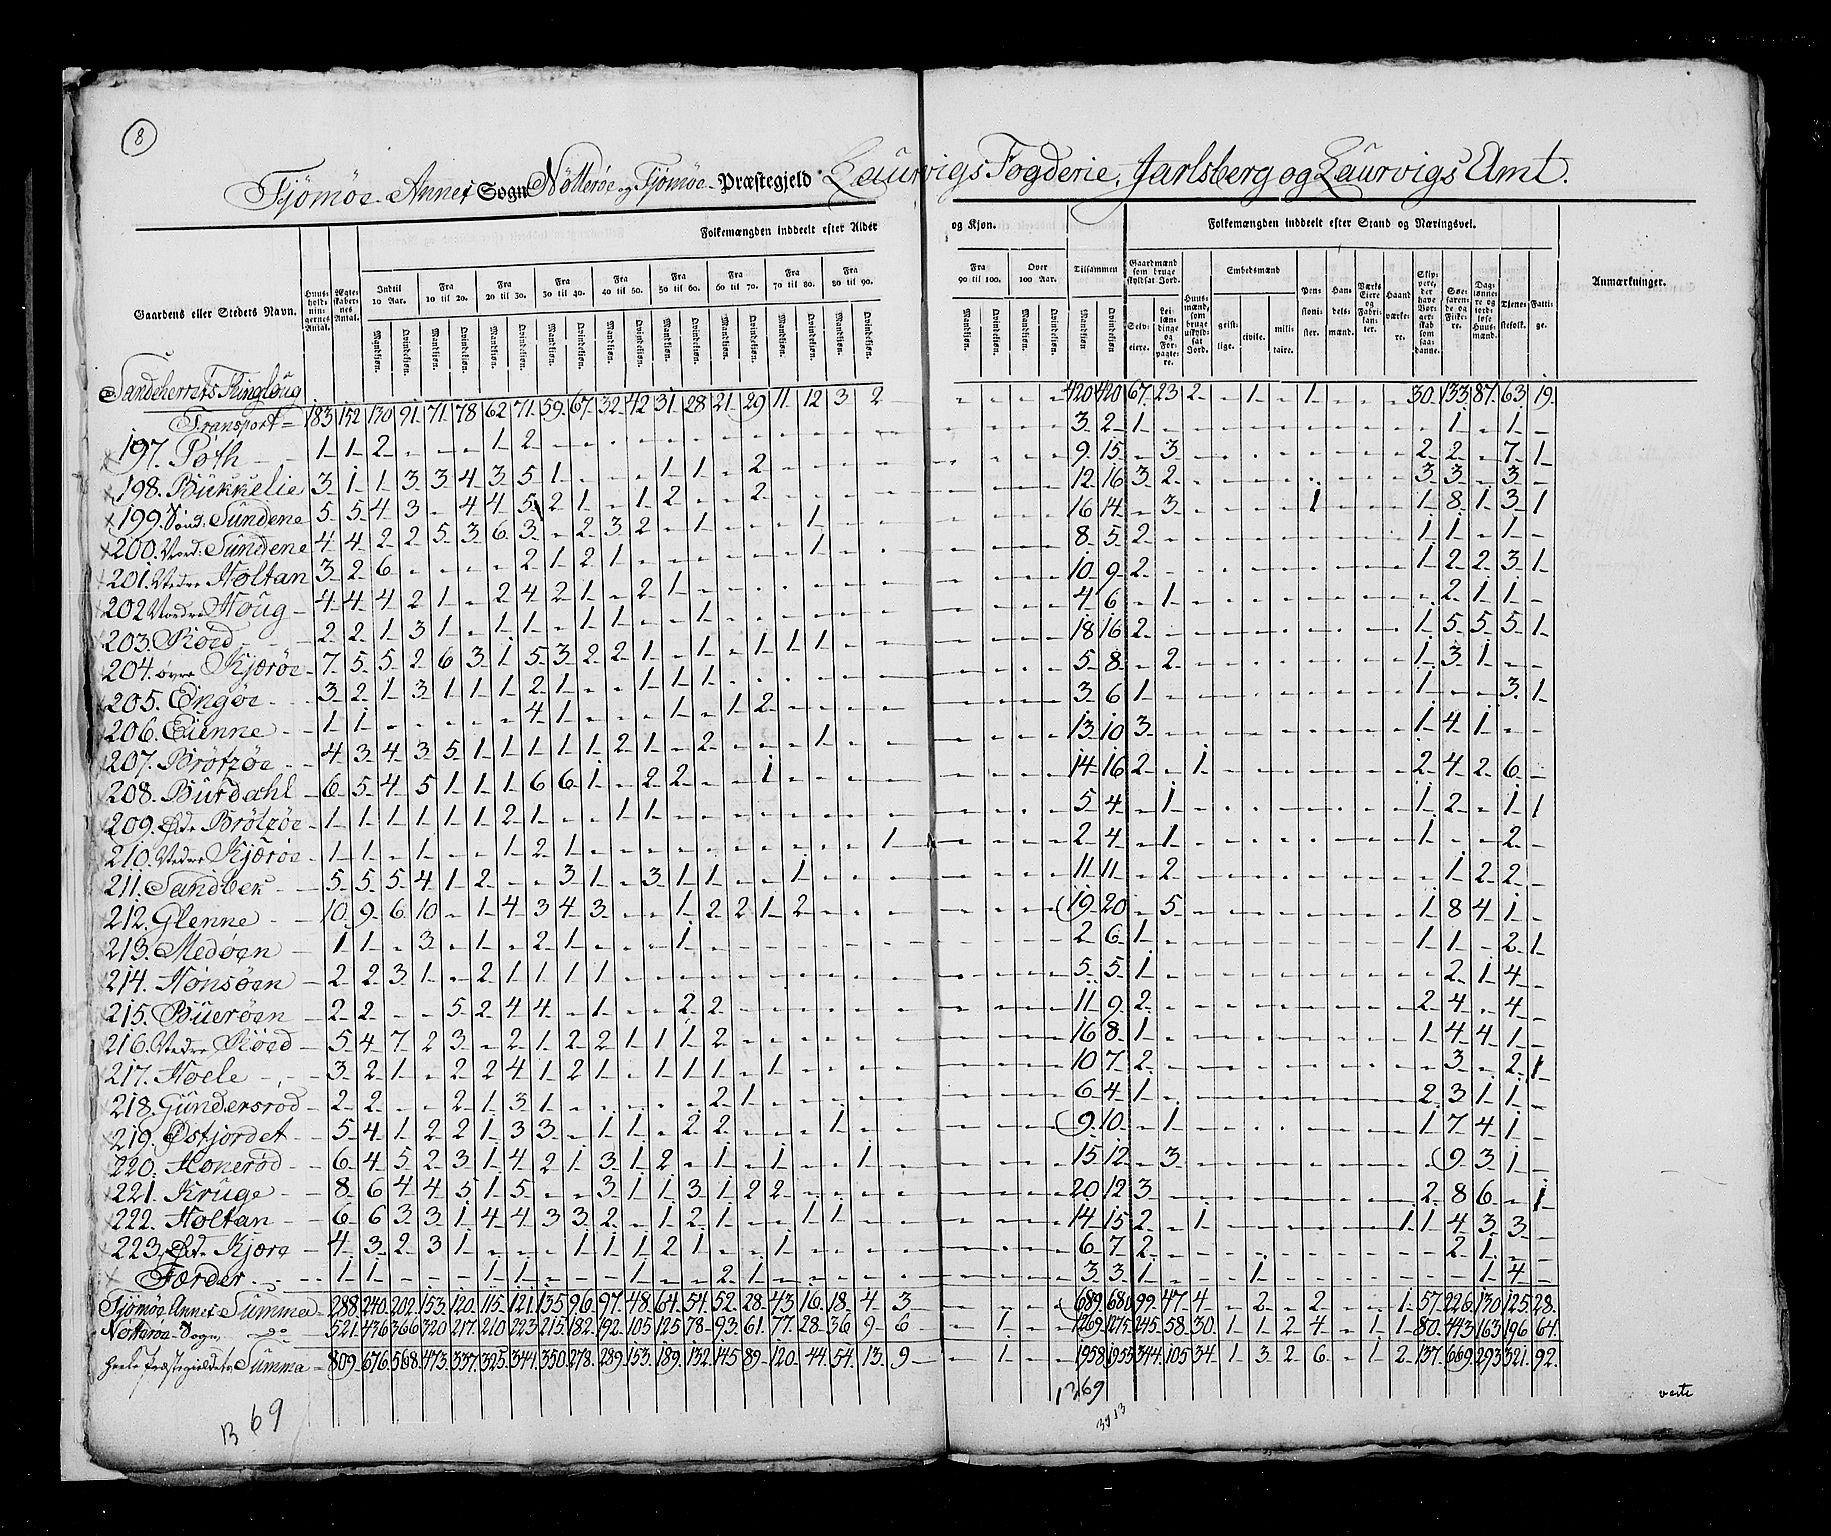 8
Tjömöe Annex Sogn Nötteröe og Tjömöe Præstegjeld Laurvigs Fogderie, Jarlsberg og Laurvigs Amt.
Folkemængden inddeelt efter Alder og Kjøn. Folkemængden inddeelt efter Stand og Næringsvei.
Gaardens eller Stedets Navn. Huus-holdningernes Antal. Ægteskabernes Antal. Indtil 10 Aar. Fra 10 til 20. Fra 20 til 30. Fra 30 til 40. Fra 40 til 50. Fra 50 til 60. Fra 60 til 70. Fra 70 til 80. Fra 80 til 90. Fra 90 til 100. Over 100 Aar. Tilsammen Gaardmænd som bruge skyldsat Jord. Huusmænd, som bruge uskyldsat Jord. Embedsmænd Pensionister. Handelsmænd. Værks Eiere og Fabrikanter. Haandværkere. Skippere, der have Borgerskab som saadanne. Søefarende og Fiskere. Daglønnere og jordløse Huusmænd. Tjenestefolk. Fattige. Anmærkninger.
Mandkjøn. Qvindekjøn. Mandkjøn. Qvindekjøn. Mandkjøn. Qvindekjøn. Mandkjøn. Qvindekjøn. Mandkjøn. Qvindekjøn. Mandkjøn. Qvindekjøn. Mandkjøn. Qvindekjøn. Mandkjøn. Qvindekjøn. Mandkjøn. Qvindekjøn. Mandkjøn. Qvindekjøn. Mandkjøn. Qvindekjøn. Mandkjøn. Qvindekjøn. Selveiere. Leilændinge og Forpagtere. geistlige. civile. militaire.
Sandeherrets Tinglaug
Transport 183 152 130 91 71 78 62 71 59 67 32 42 31 28 21 29 11 12 3 2 - - - - 420 420 67 23 2 - 1 - 1 - - - 30 133 87 63 19
197. Post 1 1 2 - - - 1 2 - - - - - - - - - - - - - - - - 3 2 1 - - - - - - - - - - 1 - 1 -
198. Bukkelie 3 1 1 3 3 4 3 5 1 - - - 1 1 - 2 - - - - - - - - 9 15 - 3 - - - - - - - - 2 2 - 7 1
199. Sönd: Sundene 5 5 4 3 - 4 4 5 2 1 - 1 2 - - 2 - - - - - - - - 12 16 3 2 - - - - - - - - 3 3 - 3 -
200. Nord: Sundene 4 4 2 2 5 3 6 3 - 2 3 2 - 1 - - - 1 - - - - - - 16 14 - 3 - - - - 1 - - - 1 8 1 3 1
201. Nedre Holtan 3 2 6 - - - - 2 1 2 1 - - - - - - 1 - - - - - - 8 5 2 - - - - - - - - - 1 1 - 1 -
202 Nordre Houg 4 4 4 2 1 - 2 4 2 1 - 2 1 - - - - - - - - - - - 10 9 2 - - - - - - - - - 1 2 2 3 1
203. Röed 2 2 1 3 1 - 1 1 - 1 1 - - 1 - - - - - - - - - - 4 6 - 1 - - - - - - - - - 2 1 1 -
204. övre Kjæröe 7 5 5 2 6 3 1 5 3 2 2 1 - 1 - 1 1 1 - - - - - - 18 16 2 - - - - - - - - - 1 5 5 5 1
205. Engöe 3 2 1 3 1 1 1 2 1 - - 1 1 1 - - - - - - - - - - 5 8 - 2 - - - - - - - - 1 3 1 - -
206. Eienne 1 1 - - - - - 4 1 - - - 1 - 1 2 - - - - - - - - 3 6 1 - - - - - - - - - 1 - - 3 1
207. Brötzöe 4 3 4 3 5 1 1 1 1 1 2 1 - 2 - - - 1 - - - - - - 13 10 3 - - - - - - - - - 1 4 1 - -
208. Burdahl 6 5 4 5 1 1 1 6 6 1 - 2 2 - - 1 - - - - - - - - 14 16 2 - 1 - - - - - - - 2 4 2 6 -
209. Øde Brötzöe 1 1 1 1 1 1 2 1 - - 1 1 - - - - - - - - - - - - 5 4 - 1 - - - - - - - - 1 2 - 1 1
210. Nedre Kjæröe 1 1 - 1 - - 1 2 1 - - - - - - - - - - 1 - - - - 2 4 - 1 - - - - - - - - 1 - - 2 -
211. Sandbek 5 5 5 4 1 2 - - 3 1 - 3 1 1 - - 1 - - - - - - - 11 11 - 2 - - - - - - - - - 1 2 2 -
212. Glenne 10 9 6 10 - 1 4 3 4 3 - - 1 2 2 1 2 - - - - - - - 19 20 - 5 - - - - - - - - 1 8 4 1 -
213. Medöen 1 1 - 3 - 1 - 2 1 - - - 1 - - - - - - - - - - - 2 6 1 - - - - - - - - - 1 1 - 2 1
214. Hönsöen 2 2 3 1 - 2 1 1 1 1 - - - - - - - - - - - - - - 5 5 1 - - - - - - - - - - 2 1 4 -
215. Bueröen 2 2 - - 5 2 4 4 - 1 - - 2 2 - - - - - - - - - - 11 9 2 - - - - - - - - - 2 4 - 4 -
216. Nedre Röed 5 4 7 2 3 - 2 1 2 2 1 1 1 2 - - - - - - - - - - 16 8 1 - - - - - - - - - 1 4 4 1 -
217. Hoele 3 2 1 - 2 2 4 1 2 1 - 1 1 1 - 1 - - - - - - - - 10 7 2 - - - - - - - - - - 3 - 2 1
218. Gundersrod 2 2 - - 2 1 3 1 - - - - - 2 1 - - - - - - - - - 6 4 1 - - - - - - - - - 2 3 1 1 -
219. Østjordet 5 4 1 2 2 1 3 3 - 1 1 - 2 2 - - - 1 - - - - - - 9 10 - 1 - - - - - - - - 1 7 4 1 -
220. Honeröd 6 4 5 2 3 1 4 2 1 3 1 2 - 1 - 1 - - 1 - - - - - 15 12 - 3 - - - - - - - - - 9 3 1 -
221. Kruge 8 6 4 4 5 1 5 - - 3 1 1 3 1 2 2 - - - - - - - - 20 12 3 - - - - - - - - - 2 8 6 - 1
222. Holtan 6 6 3 3 1 4 4 3 3 2 - 1 2 1 - - 1 1 - - - - - - 14 15 2 - 1 - - - - - - 1 1 4 3 3 -
223. Øde Kjæra 4 3 2 3 1 - - - 1 1 1 2 1 - - 1 - - - - - - - - 6 7 2 - - - - - - - - - - 2 1 - -
Færder 1 1 - - - - 1 1 - - - 1 - - 2 1 - - - - - - - - 3 3 1 - - - 1 - - - - - - - 1 4 -
Tjömöe Annex Summa 288 240 202 153 120 115 121 135 96 97 48 64 54 52 28 43 16 18 4 3 - - - - 689 680 99 47 4 - 2 - 2 - - 1 57 226 130 125 28
Nötteröe Sogn do 521 436 366 320 217 210 223 215 182 192 105 125 78 93 61 77 28 36 9 6 - 1 - - 1269 1275 245 58 30 1 1 2 4 - 1 1 80 443 163 196 64
Heele Præstegieldets Summa 809 676 568 473 337 325 344 350 278 289 153 189 132 145 89 120 44 54 13 9 - 1 - - 1958 1955 344 105 34 1 3 2 6 - 1 2 137 669 293 321 92
1369
3913
B 69
verte